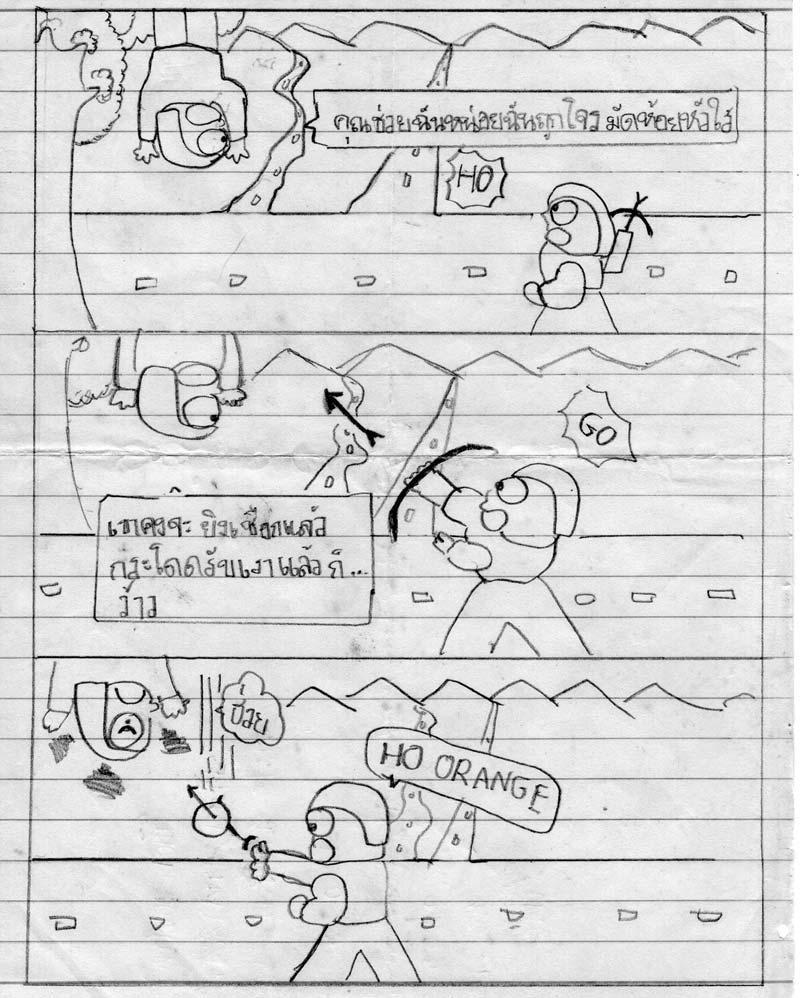 คุณช่วยฉันหน่อยฉันถูกโจรมัดห้อยหัวไว้
HO
GO
เขาคงจะยิงเชือกแล้ว
กระโดดรับเราแล้วก็...
ว้าว
ป่วย
HO ORANGE